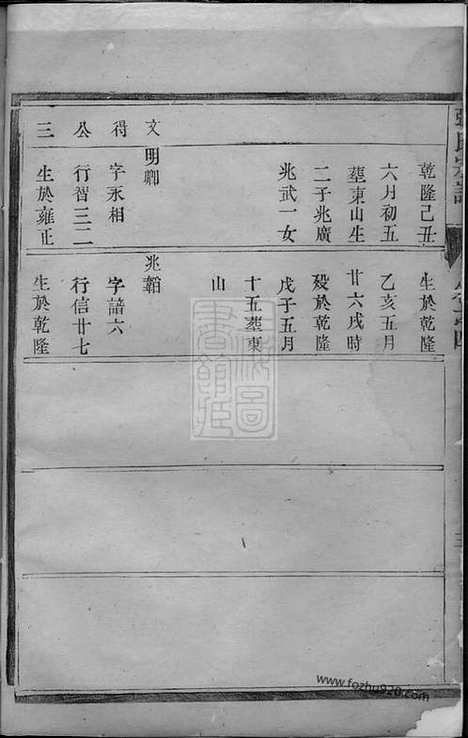 乾隆己丑
六月初五
塟東山生
二子兆廣
兆武一女
文明卿
得 字永相
公 行智三二
三 生於雍正
生於乾隆
乙亥五月
廿六戌時
殁於乾隆
戊子五月
十五塟東
山
兆韜
字諳六
行信廿七
生於乾隆
www.fozhu920.com